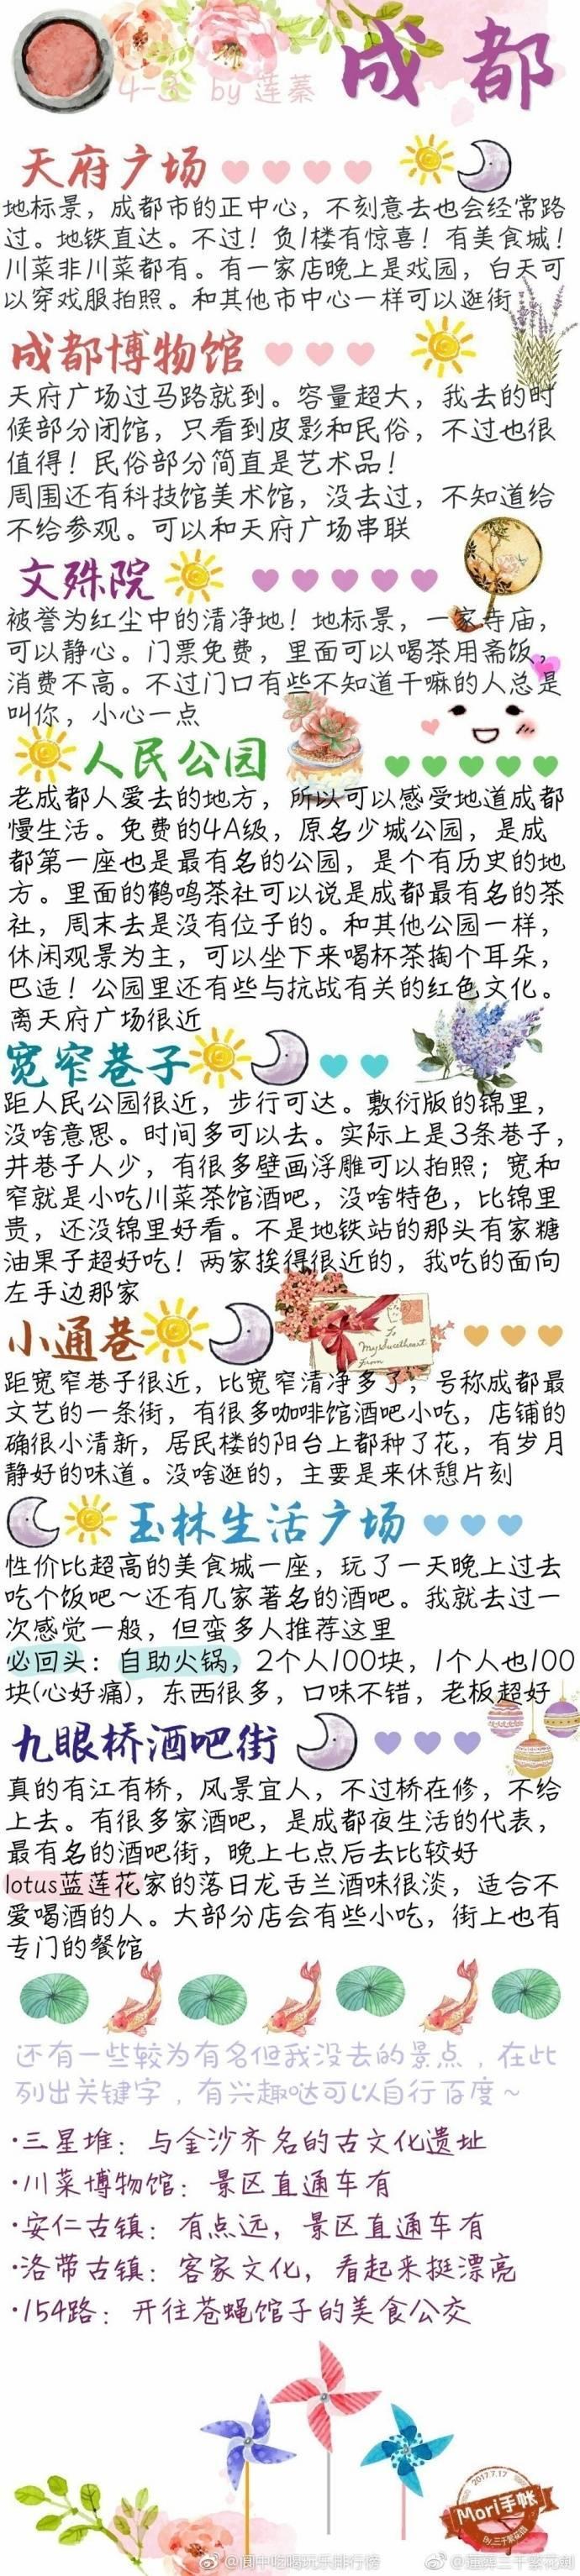 成都
4-3 by 莲蓁
天府广场
地标景，成都市的正中心，不刻意去也会经常路
过。地铁直达。不过！负1楼有惊喜！有美食城！
川菜非川菜都有。有一家店晚上是戏园，白天可
以穿戏服拍照。和其他市中心一样可以逛街
成都博物馆
天府广场过马路就到。容量超大，我去的时
候部分闭馆，只看到皮影和民俗，不过也很
值得！民俗部分简直是艺术品！
周围还有科技馆美术馆，没去过，不知道给
不给参观。可以和天府广场串联
文殊院
被誉为红尘中的清净地！地标景，一家寺庙，
可以静心。门票免费，里面可以喝茶用斋饭，
消费不高。不过门口有些不知道干嘛的人总是
叫你，小心一点
人民公园
老成都人爱去的地方，所以可以感受地道成都
慢生活。免费的4A级，原名少城公园，是成
都第一座也是最有名的公园，是个有历史的地
方。里面的鹤鸣茶社可以说是成都最有名的茶
社，周末去是没有位子的。和其他公园一样，
休闲观景为主，可以坐下来喝杯茶掏个耳朵，
巴适！公园里还有些与抗战有关的红色文化。
离天府广场很近
宽窄巷子
距人民公园很近，步行可达。敷衍版的锦里，
没啥意思。时间多可以去。实际上是3条巷子，
井巷子人少，有很多壁画浮雕可以拍照；宽和
窄就是小吃川菜茶馆酒吧，没啥特色，比锦里
贵，还没锦里好看。不是地铁站的那头有家糖
油果子超好吃！两家挨得很近的，我吃的面向
左手边那家
小通巷
To
My Sweetheart
From
距宽窄巷子很近，比宽窄清净多了，号称成都最
文艺的一条街，有很多咖啡馆酒吧小吃，店铺的
确很小清新，居民楼的阳台上都种了花，有岁月
静好的味道。没啥逛的，主要是来休憩片刻
玉林生活广场
性价比超高的美食城一座，玩了一天晚上过去
吃个饭吧～还有几家著名的酒吧。我就去过一
次感觉一般，但蛮多人推荐这里
必回头：自助火锅，2个人100块，1个人也100
块(心好痛)，东西很多，口味不错，老板超好
九眼桥酒吧街
真的有江有桥，风景宜人，不过桥在修，不给
上去。有很多家酒吧，是成都夜生活的代表，
最有名的酒吧街，晚上七点后去比较好
lotus蓝莲花家的落日龙舌兰酒味很淡，适合不
爱喝酒的人。大部分店会有些小吃，街上也有
专门的餐馆
还有一些较为有名但我没去的景点，在此
列出关键字，有兴趣哒可以自行百度～
·三星堆：与金沙齐名的古文化遗址
·川菜博物馆：景区直通车有
·安仁古镇：有点远，景区直通车有
·洛带古镇：客家文化，看起来挺漂亮
·154路：开往苍蝇馆子的美食公交
2017.7.17
Mori手帐
@阆中吃喝玩乐排行榜